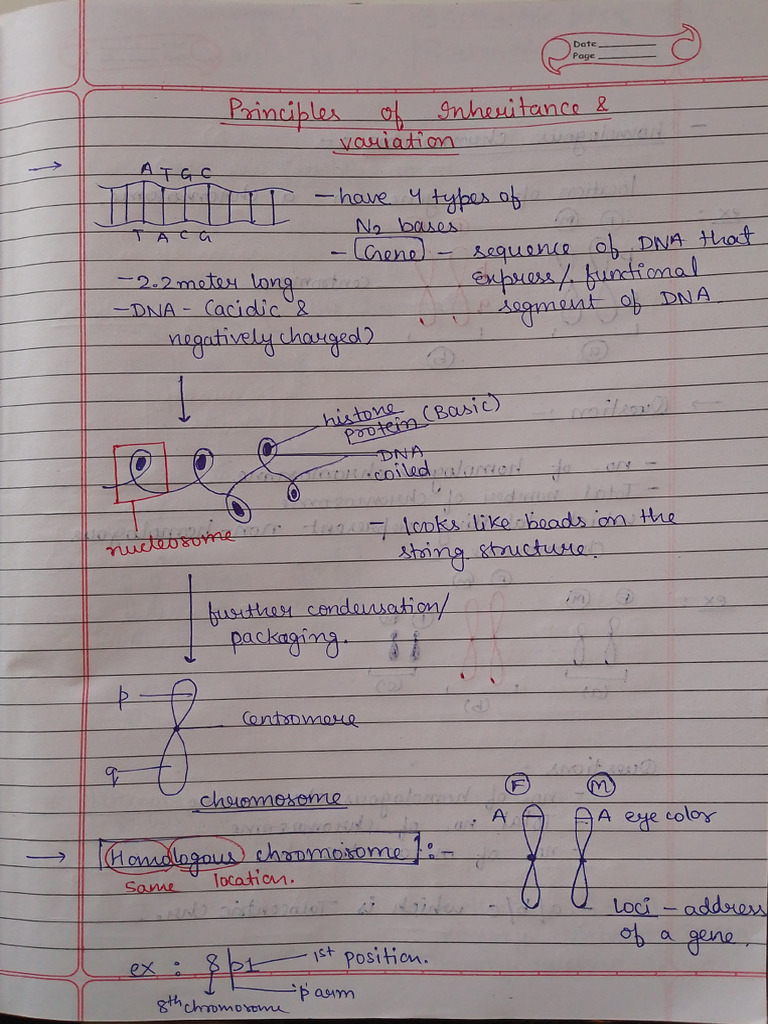 Date
Page
Principles of Inheritance &
variation
A T G C
T A C G
- have 4 types of
N2 bases
- Gene - sequence of DNA that
express/. functional
segment of DNA.
- 2.2 meter long
- DNA - (acidic &
negatively charged)
histone
protein (Basic)
DNA
coiled
nucleosome
- looks like beads on the
string structure.
further condensation/
packaging.
p
centromere
q
chromosome
F M
A A eye color
Homologous chromosome :-
same location.
loci - address
of a gene.
ex : 8p1 1st position.
p arm
8th chromosome